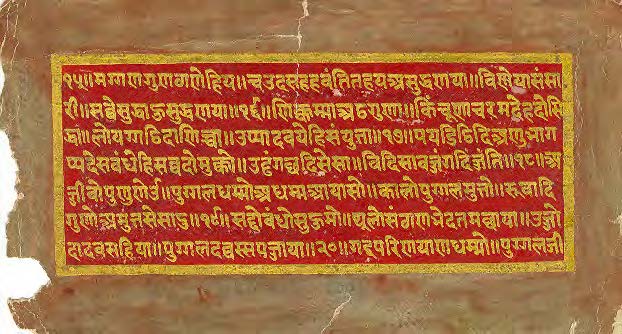 १५॥मग्गणगुणगणेहिय॥चउदसहहवंतितहयअसुद्धणया॥विणेयासंसा
री॥सव्वेसुद्धाऊसुद्धणया॥१६॥णिक्कम्माअठगुणा॥किंचूणाचरमदेहदोसि
द्धा॥लोयग्गठिदाणिच्चा॥उप्पादवयेहिसंयुत्ता॥१७॥पयडिठिदिअणुभाग
प्पदेसबंधेहिसव्वदोमुक्को॥उड्ढगच्छदिसेसा॥विदिसावज्जगदिंजंति॥१८॥अ
ज्जीवोपुणणेउ॥पुग्गलधम्मोअधम्मआयासो॥कालोपुग्गलमुत्तो॥रूवादि
गुणोअमुत्तसेसाउ॥१९॥सद्दोबंधोसुहुमो॥थूलोसंठाणभेदतमछाया॥उज्जो
दादवसहिया॥पुग्गलदव्वस्सपज्जाया॥२०॥गइपरिणयाणधम्मो॥पुग्गलजी